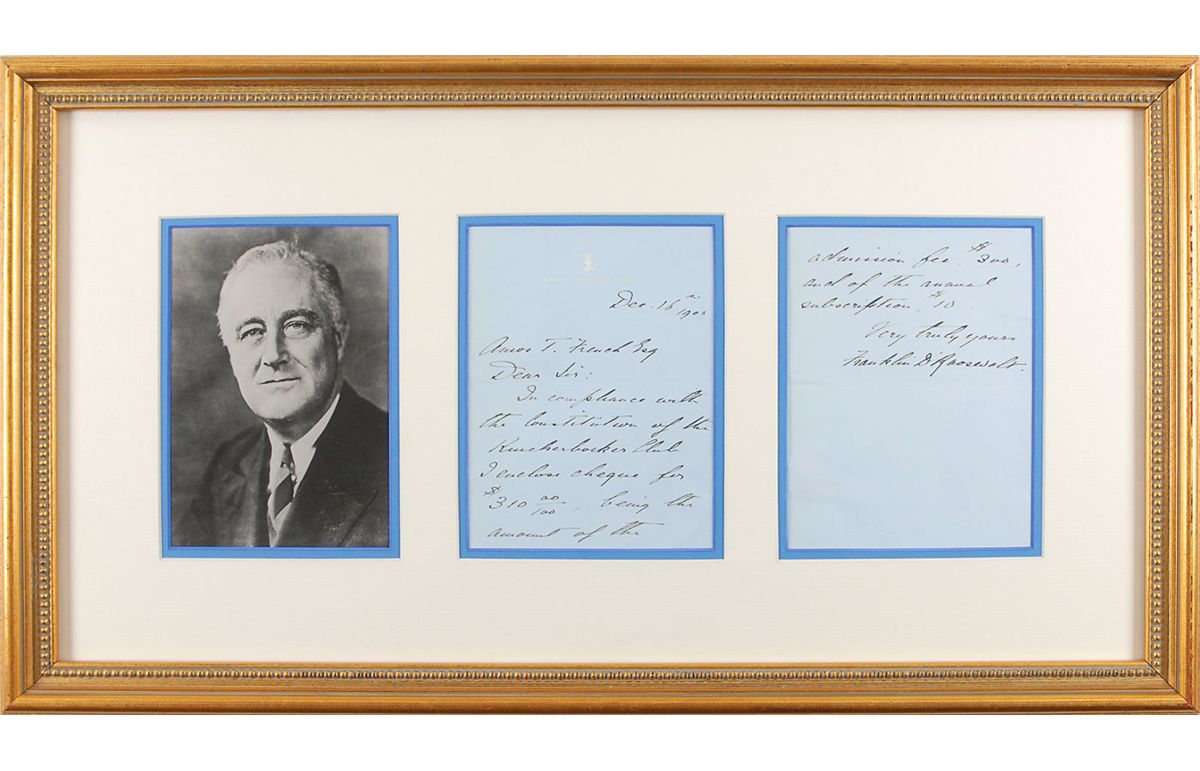 Dec. 16th
1903
Amos T. French Esq
Dear Sir:
In compliance with
the Constitution of the
Knickerbocker Club
I enclose cheque for
$310 00/100, being the
amount of the
admission fee $300,
and of the annual
subscription, $10.
Very truly yours
Franklin D Roosevelt.